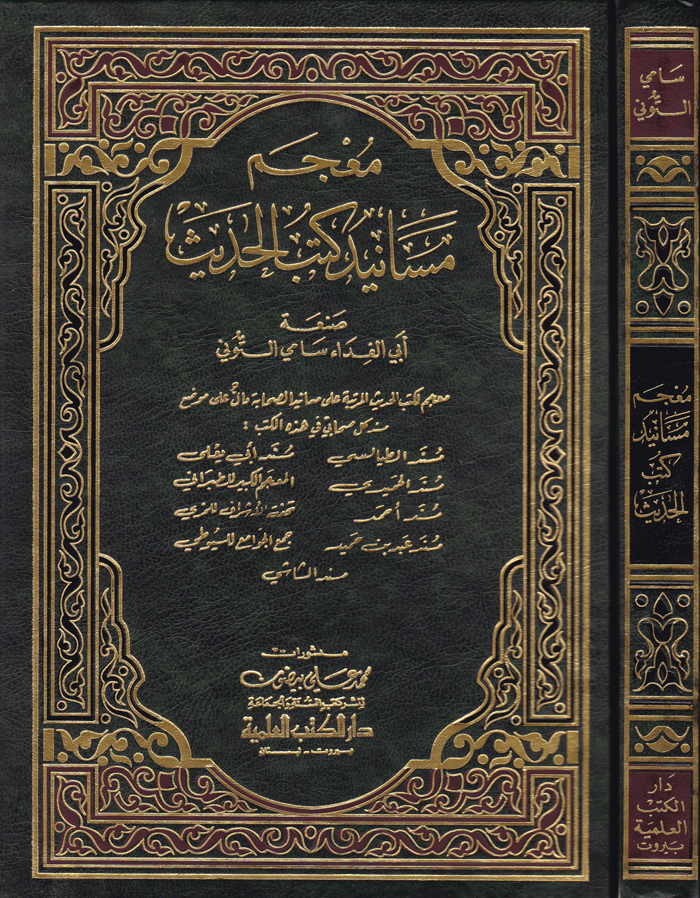 مُعْجَم
مسَانيد كتبُ الحَديثْ
صَنعَة
أبي الفِدَاء سَامي التُّوني
معجم لكتب الحديث المرتبة على مسانيد الصحابة دالٌّ على موضع
مسند كل صحابي في هذه الكتب :
مُسْنَد الطيالسي مُسْنَد أبي يَعْلى
مُسْنَد الحميدي المعجَم الكبير للطبراني
مُسْنَد أحمد تحفة الأشراف للمزي
مُسْنَد عَبد بن حميد جمع الجوَامع للسيُوطي
مسند الشاشي
منشورات
محمد علي بيضون
لنشر كتب السنة والجماعة
دار الكتب العلمية
بيروت - لبنان
سَامي
التُّوني
مُعْجَم
مسَانيد
كتبُ
الحَديث
دَار
الكتب
العلمية
بيروت